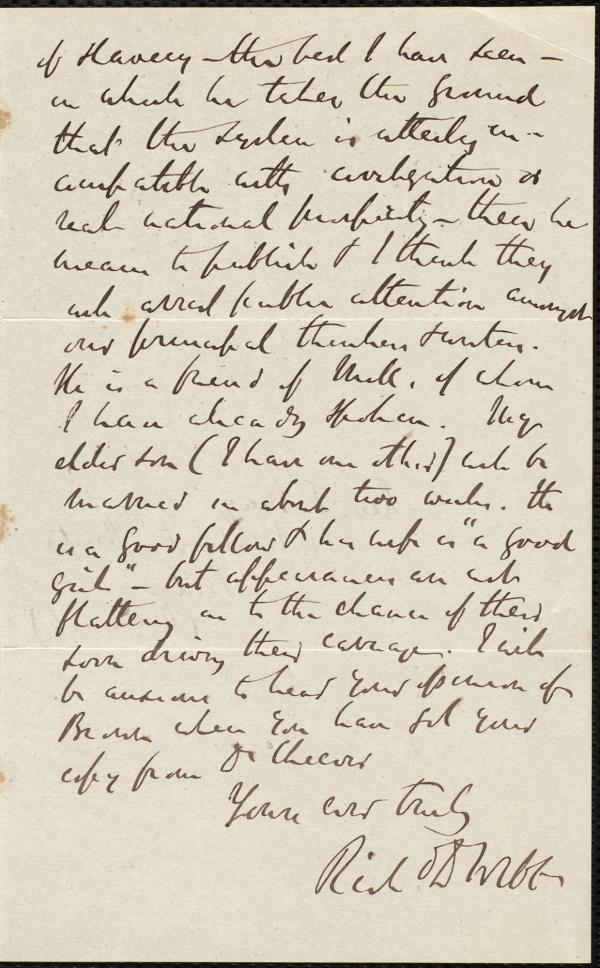 of slavery - the best I have seen -
in which he takes the ground
that the system is utterly in-
compatible with civilization or
real national prosperity - these he
means to publish & I think they
will arrest public attention amongst
our principal thinkers & writers.
He is a friend of Mill, of whom
I have already spoken. My
elder son (I have one other) will be
married in about two weeks. He
is a good fellow & his wife is "a good
girl" - but appearances are not
flattering as to the chance of their
soon driving their carriage. I will
be anxious to hear your opinion of
Brown when you have got your
copy from Dr Cheever
Yours ever truly
Richd D Webb